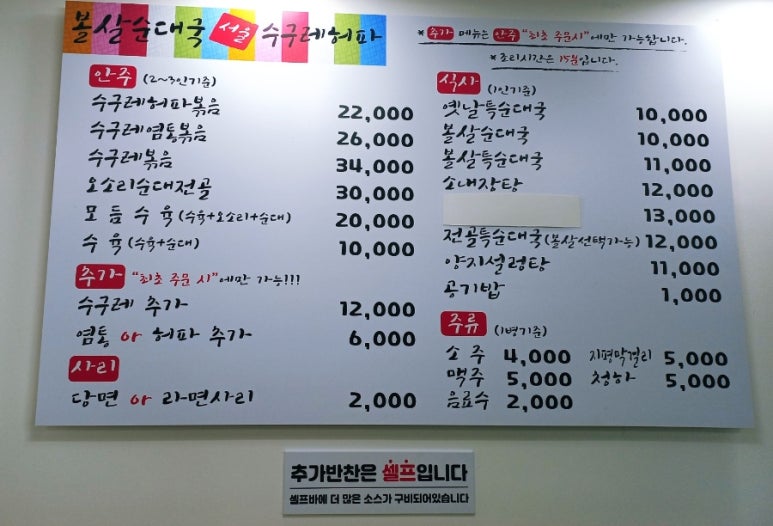 볼살순대국 서울 수구레허파
*추가 메뉴는 안주 "최초 주문시"에만 가능합니다.
*조리시간은 15분입니다.
안주 (2~3인기준)
수구레허파볶음 22,000
수구레염통볶음 26,000
수구레볶음 34,000
오소리순대전골 30,000
모듬수육 (수육+오소리+순대) 20,000
수육 (수육+순대) 10,000
추가 "최초 주문 시"에만 가능!!!
수구레 추가 12,000
염통 or 허파 추가 6,000
사리
당면 or 라면사리 2,000
식사 (1인기준)
옛날특순대국 10,000
볼살순대국 10,000
볼살특순대국 11,000
소내장탕 12,000
13,000
전골특순대국(볼살선택가능) 12,000
양지설렁탕 11,000
공기밥 1,000
주류 (1병기준)
소주 4,000 지평막걸리 5,000
맥주 5,000 청하 5,000
음료수 2,000
추가반찬은 셀프입니다
셀프바에 더 많은 소스가 구비되어있습니다